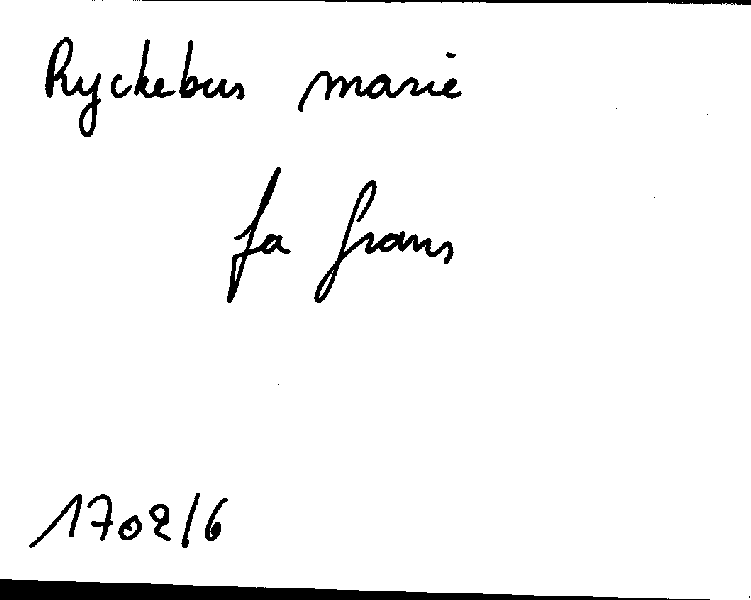 Ryckebus marie
fa frans
1702/6